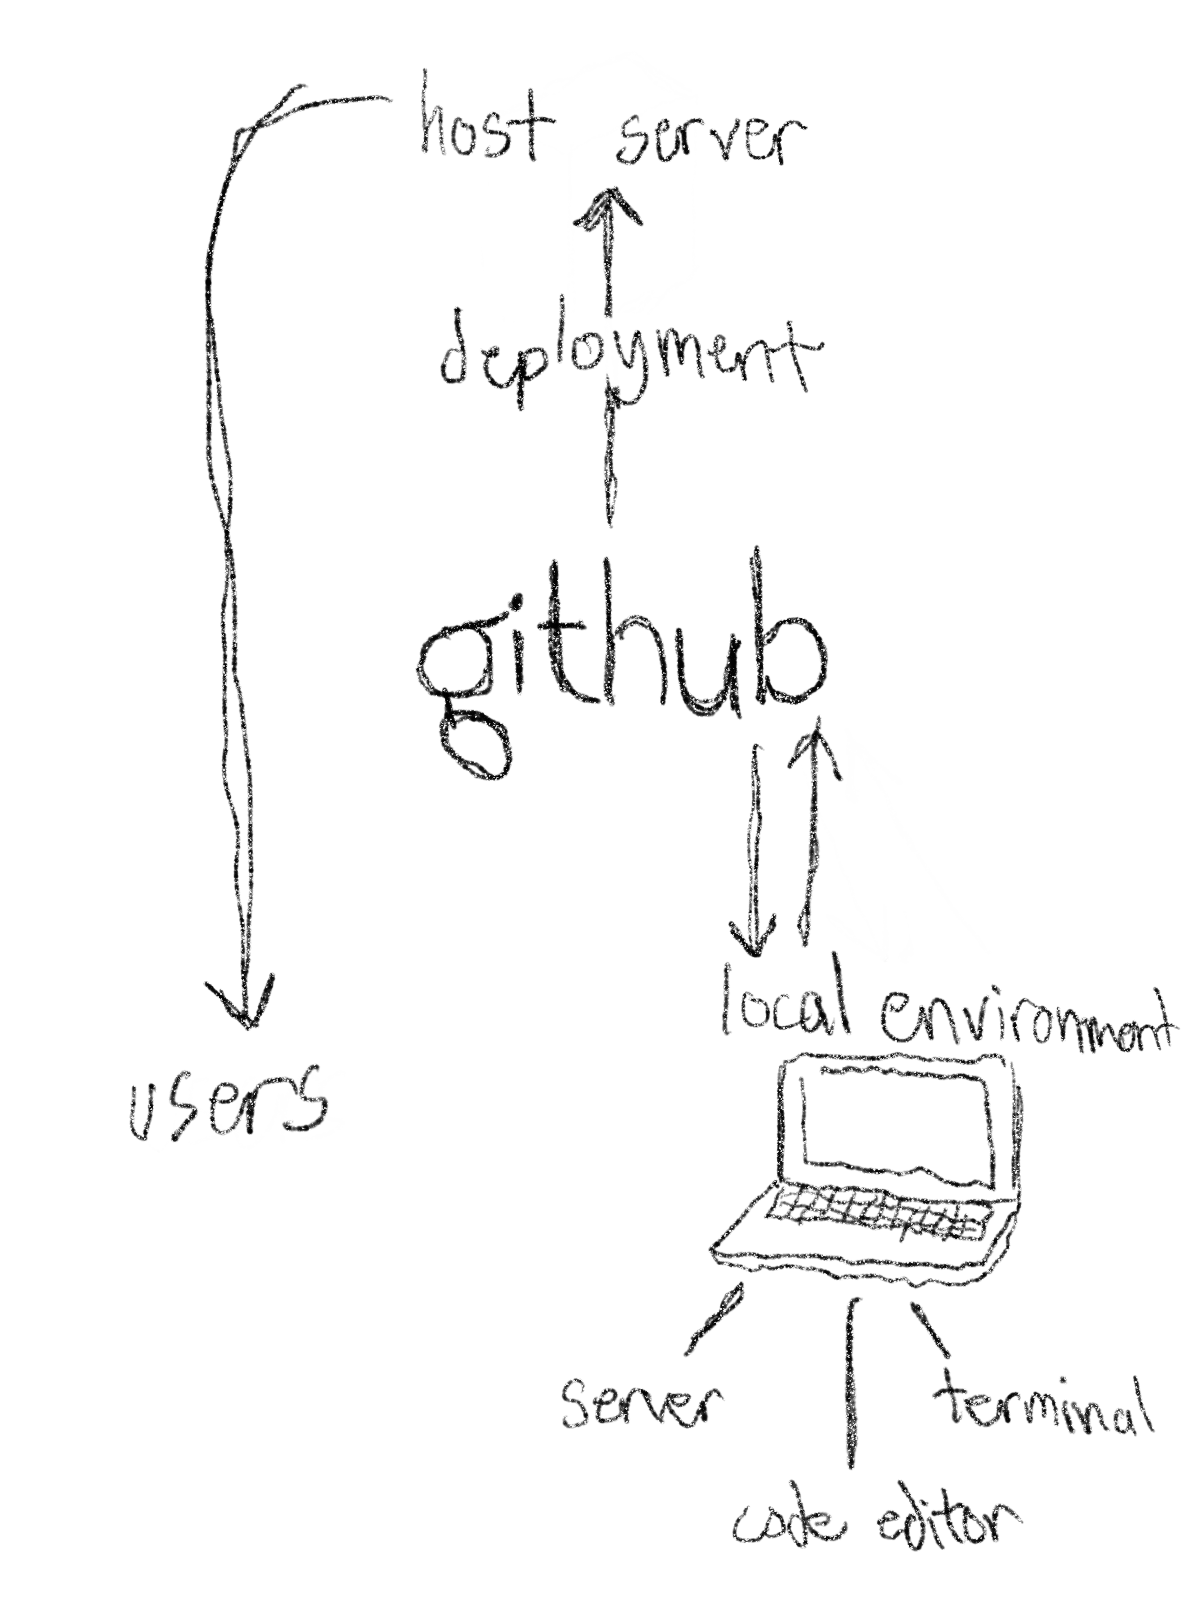 host server
deployment
github
local environment
users
server
terminal
code editor